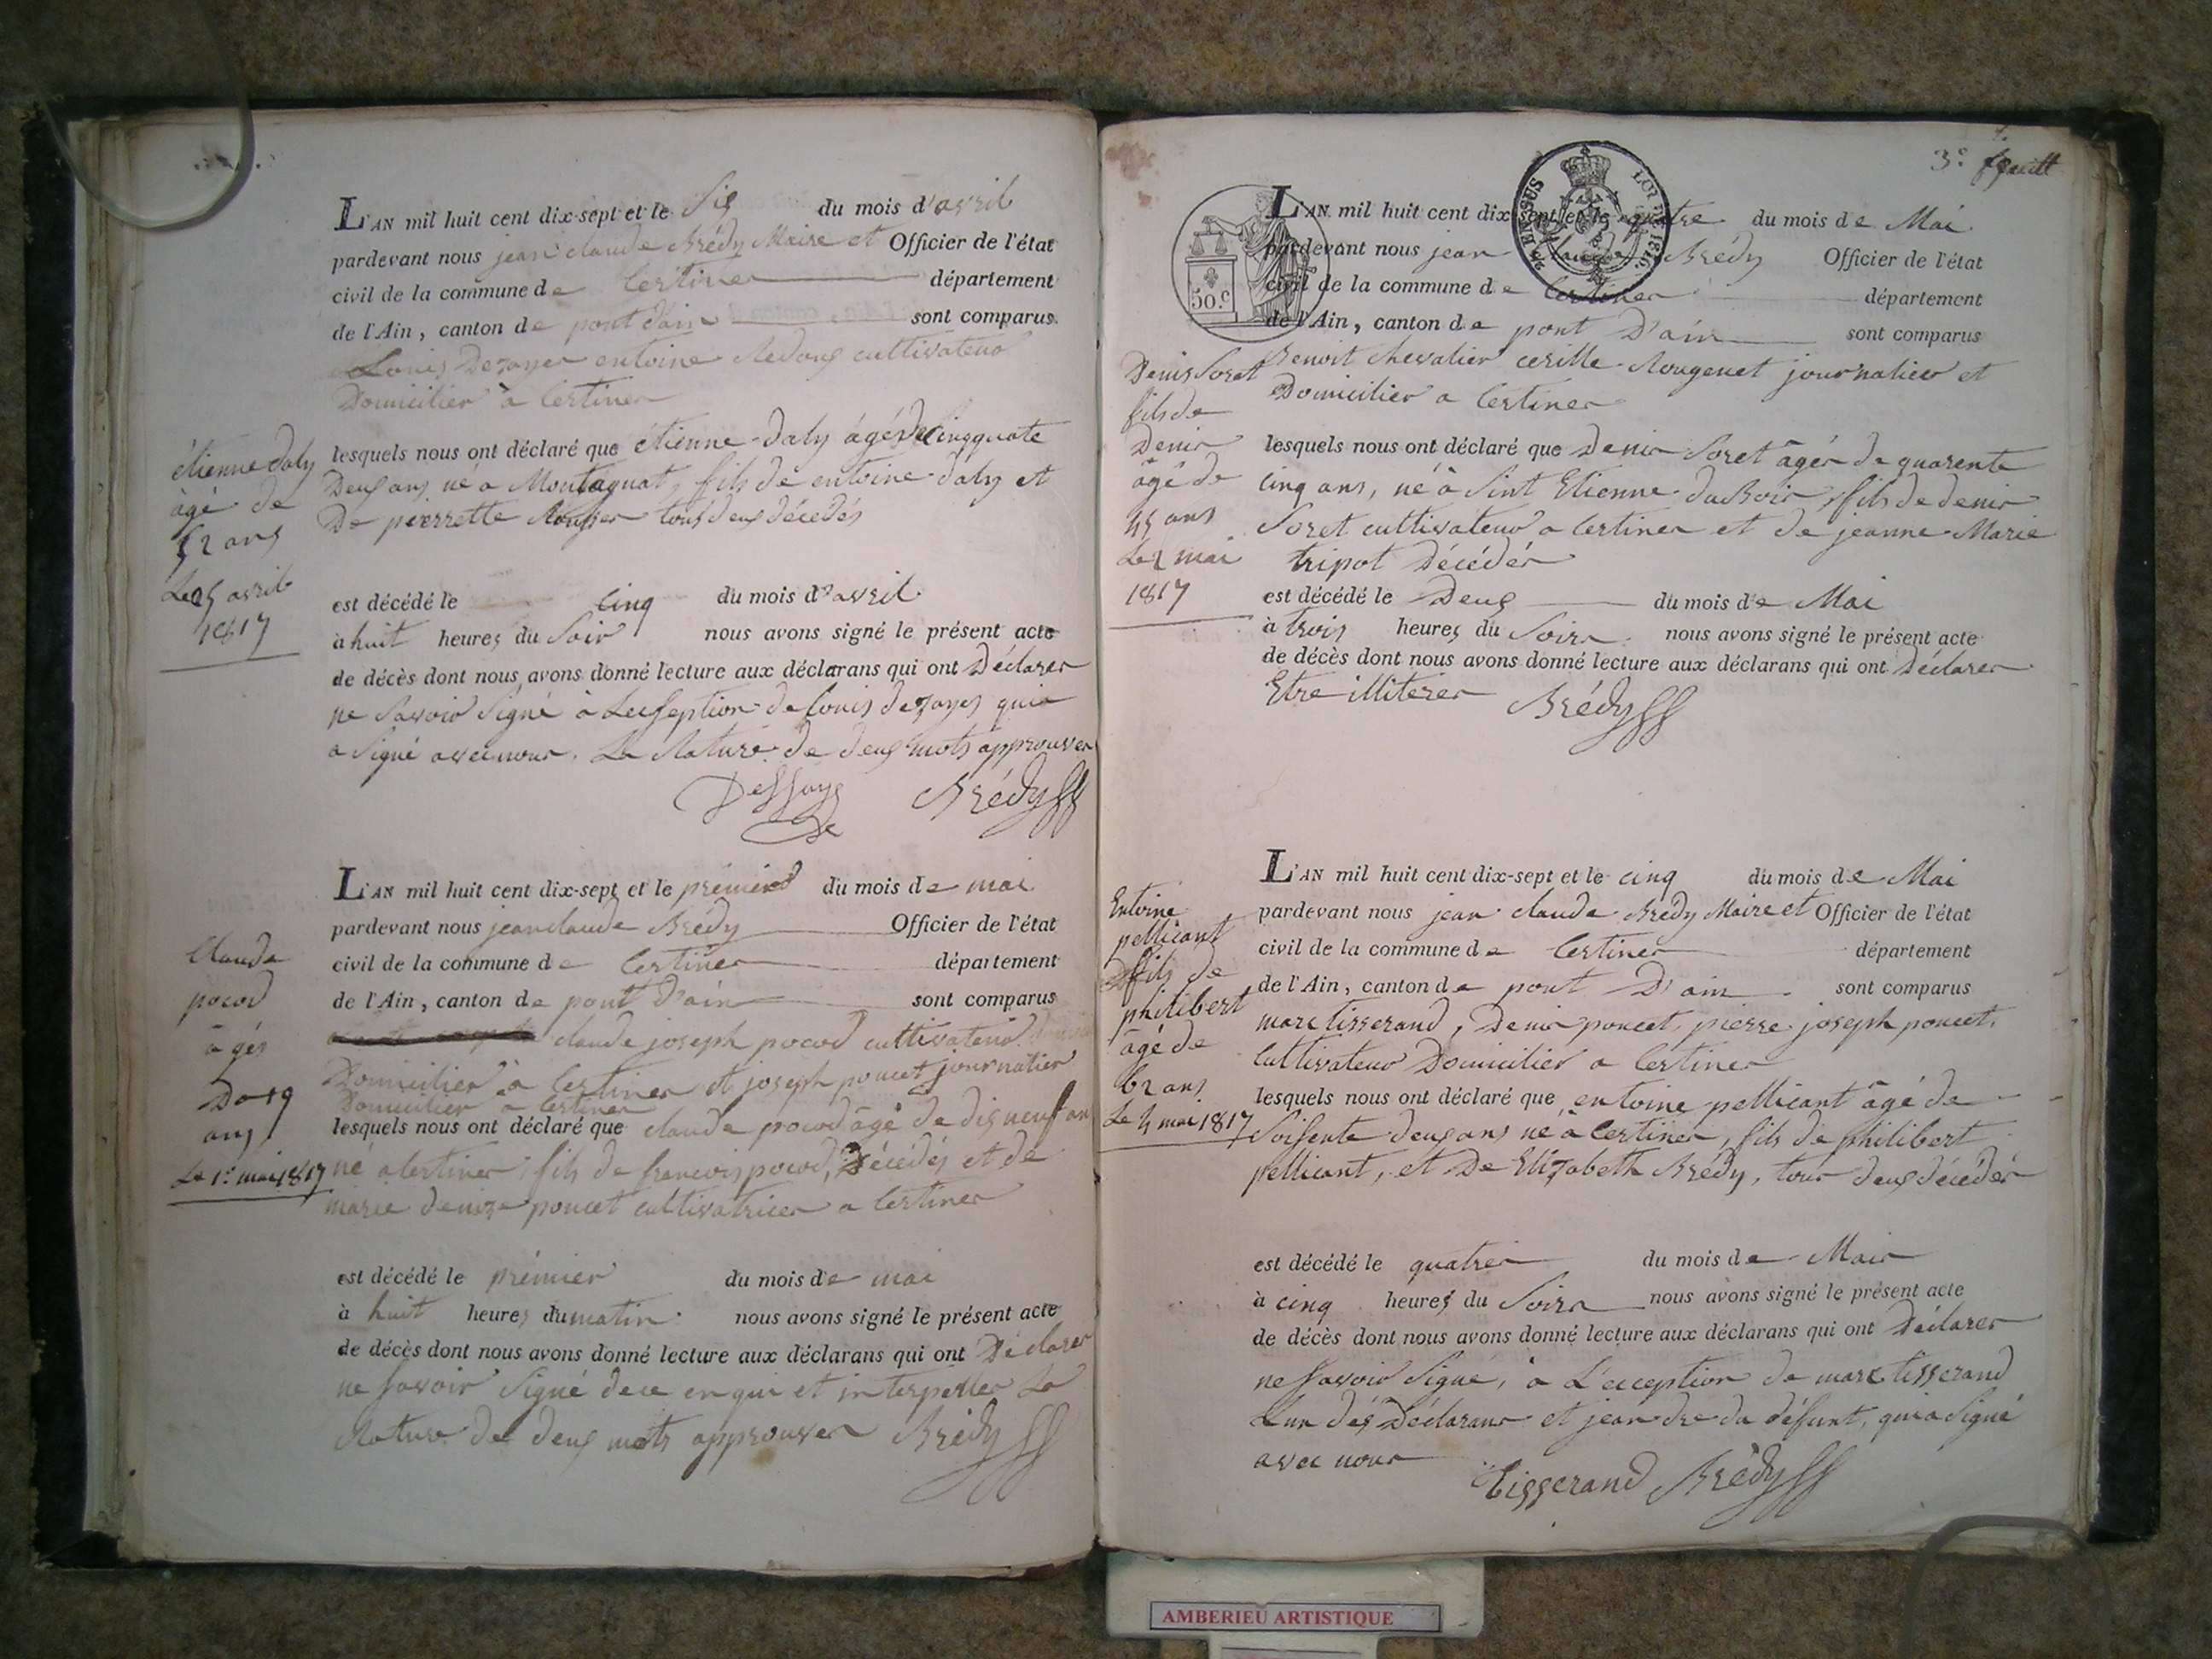 L'AN mil huit cent dix-sept et le Six du mois d'avril
pardevant nous jean claude Brédy Maire et Officier de l'état
civil de la commune de Certines département
de l'Ain, canton de pont d'ain sont comparus
Louis Dezayes entoine cultivateur
Domicilier à Certines
étienne daly
âgé de
52 ans
Le 5 avril
1817
lesquels nous ont déclaré que étienne daly âgé de Cinqquate
Deux ans né a Montagnat, fils de entoine daly et
De pierrette tous deux décédés
est décédé le cinq du mois d'avril
à huit heures du Soir nous avons signé le présent acte
de décès dont nous avons donné lecture aux déclarans qui ont Déclarer
ne Savoir Signé à Lexseption de Louis dezayes qui
a Signé avec nous. La Rature de deux mots approuver
Brédy
L'AN mil huit cent dix-sept et le prémier du mois de mai
pardevant nous jean claude Brédy Officier de l'état
civil de la commune de Certines département
de l'Ain, canton de pont d'ain sont comparus
claude joseph pocod cultivateur
Domicilier à Certines et joseph poncet journalier
Domicilier a Certines
Claude
pocod
âgés
De 19
ans
Le 1er mai 1817
lesquels nous ont déclaré que claude pocod âgé de dix neuf an
né a Certines, fils de francois pocod, Décédés et de
marie denize poncet cultivatrices a Certines
est décédé le prémier du mois de mai
à huit heures du matin nous avons signé le présent acte
de décès dont nous avons donné lecture aux déclarans qui ont Déclarer
ne Savoir Signé de ce enquis et interpeller La
Rature de deux mots approuver Brédy
3e feuill
50.c
L'AN mil huit cent dix-sept et le quatre du mois de Mai
pardevant nous jean claude Brédy Officier de l'état
civil de la commune de Certines département
de l'Ain, canton de pont D'ain sont comparus
Benoit Chevalier cerille Rougenet journalier et
Domicilier a Certines
Denis Soret
fils de
Denis
âgé de
45 ans
Le 2 mai
1817
lesquels nous ont déclaré que Denis Soret âgés de quarente
cinq ans, né à Sint Etienne duBois, fils de denis
Soret cultivateur a Certines et de jeanne Marie
tripot Décédés
est décédé le Deux du mois de Mai
à trois heures du Soirs nous avons signé le présent acte
de décès dont nous avons donné lecture aux déclarans qui ont Déclarer
Etre illiteres Brédy
L'AN mil huit cent dix-sept et le cinq du mois de Mai
pardevant nous jean claude Brédy Maire et Officier de l'état
civil de la commune de Certines département
de l'Ain, canton de pont D'ain sont comparus
marc tisserand, Denis poncet, pierre joseph poncet,
Cultivateur Domicilier a Certines
Entoine
pellicant
fils de
philibert
âgé de
62 ans
Le 4 mai 1817
lesquels nous ont déclaré que entoine pellicant âgé de
Soisente deux ans né à Certines, fils de philibert
pellicant, et De Elizabeth Brédy, tous deux décédés
est décédé le quatres du mois de Mais
à cinq heures du Soirs nous avons signé le présent acte
de décès dont nous avons donné lecture aux déclarans qui ont Déclarer
ne Savoir Signé, à L'exception de marc tisserand
Lun des Déclarans et jean dre du défunt, qui a Signé
avec nous
Tisserand Brédy
AMBERIEU ARTISTIQUE